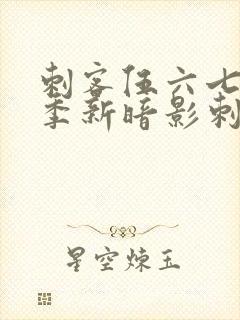 刺客伍六七
季新暗影刺
星空炼玉